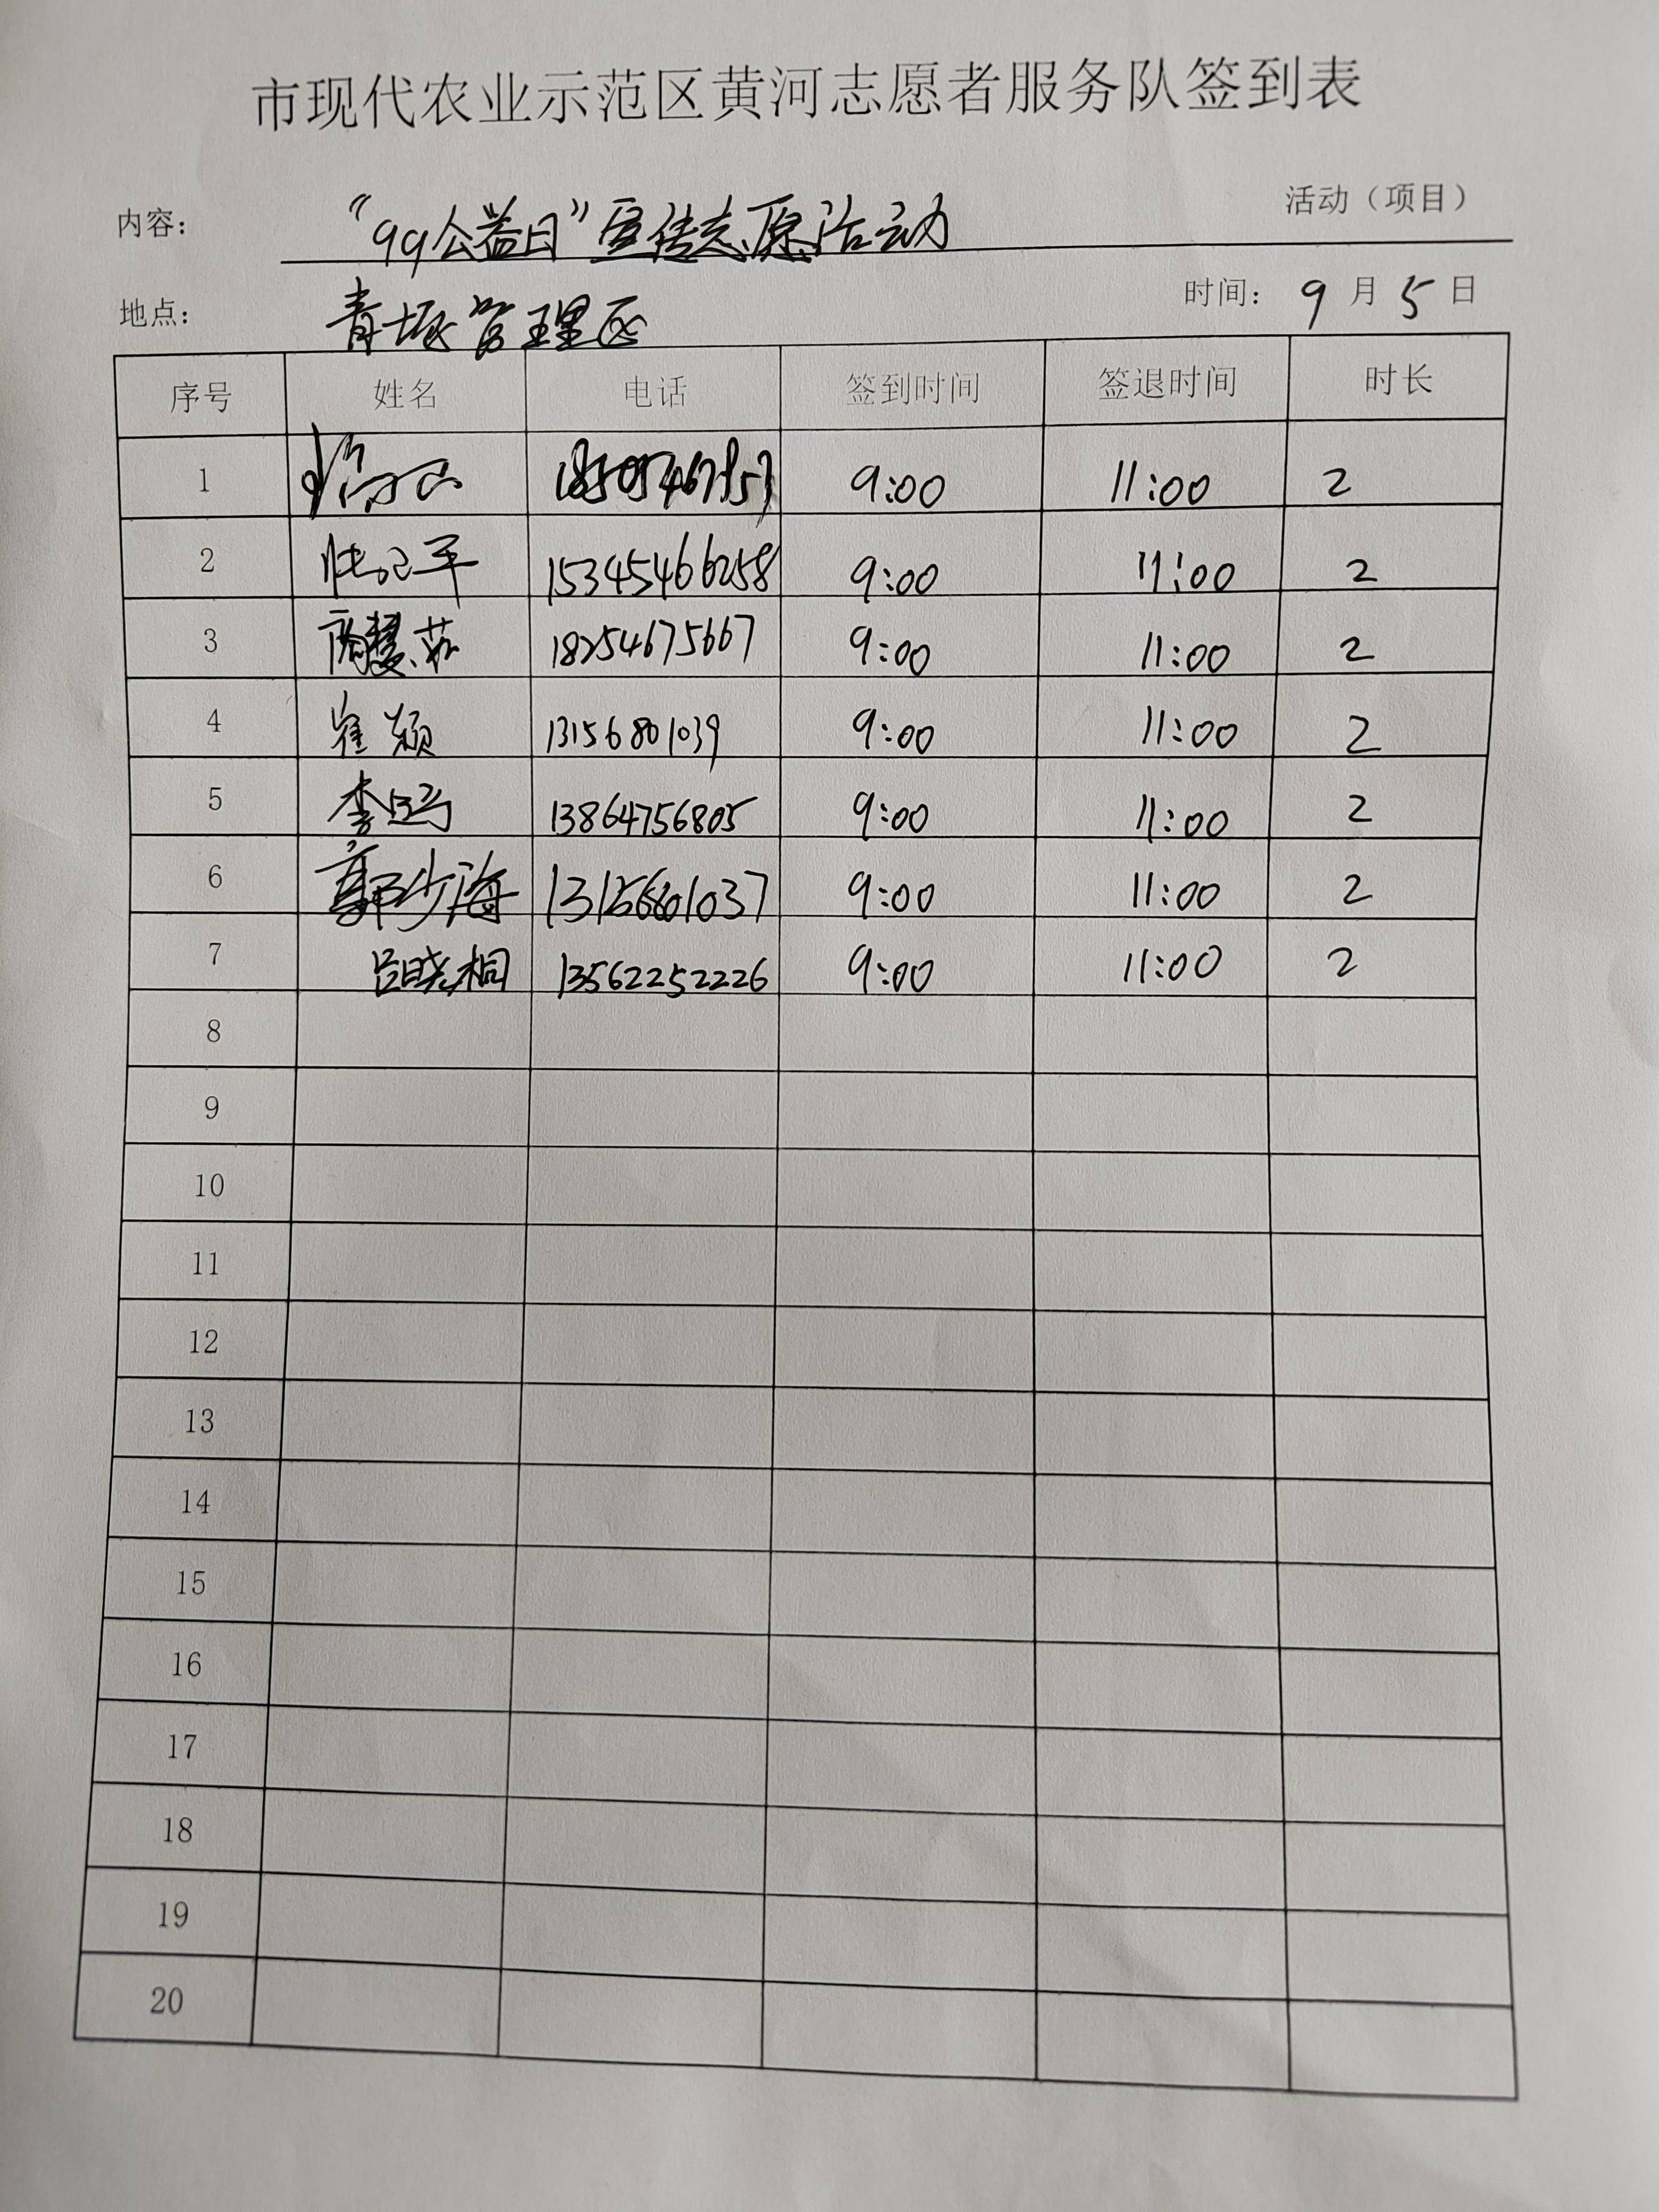 市现代农业示范区黄河志愿者服务队签到表
内容： “99公益日”宣传志愿活动 活动（项目）
地点： 青垦管理区 时间： 9 月 5 日
序号 姓名 电话 签到时间 签退时间 时长
1 9:00 11:00 2
2 15345466258 9:00 11:00 2
3 18254675667 9:00 11:00 2
4 崔颖 13156801039 9:00 11:00 2
5 13864756805 9:00 11:00 2
6 郭少海 9:00 11:00 2
7 吕晓桐 13562252226 9:00 11:00 2
8
9
10
11
12
13
14
15
16
17
18
19
20